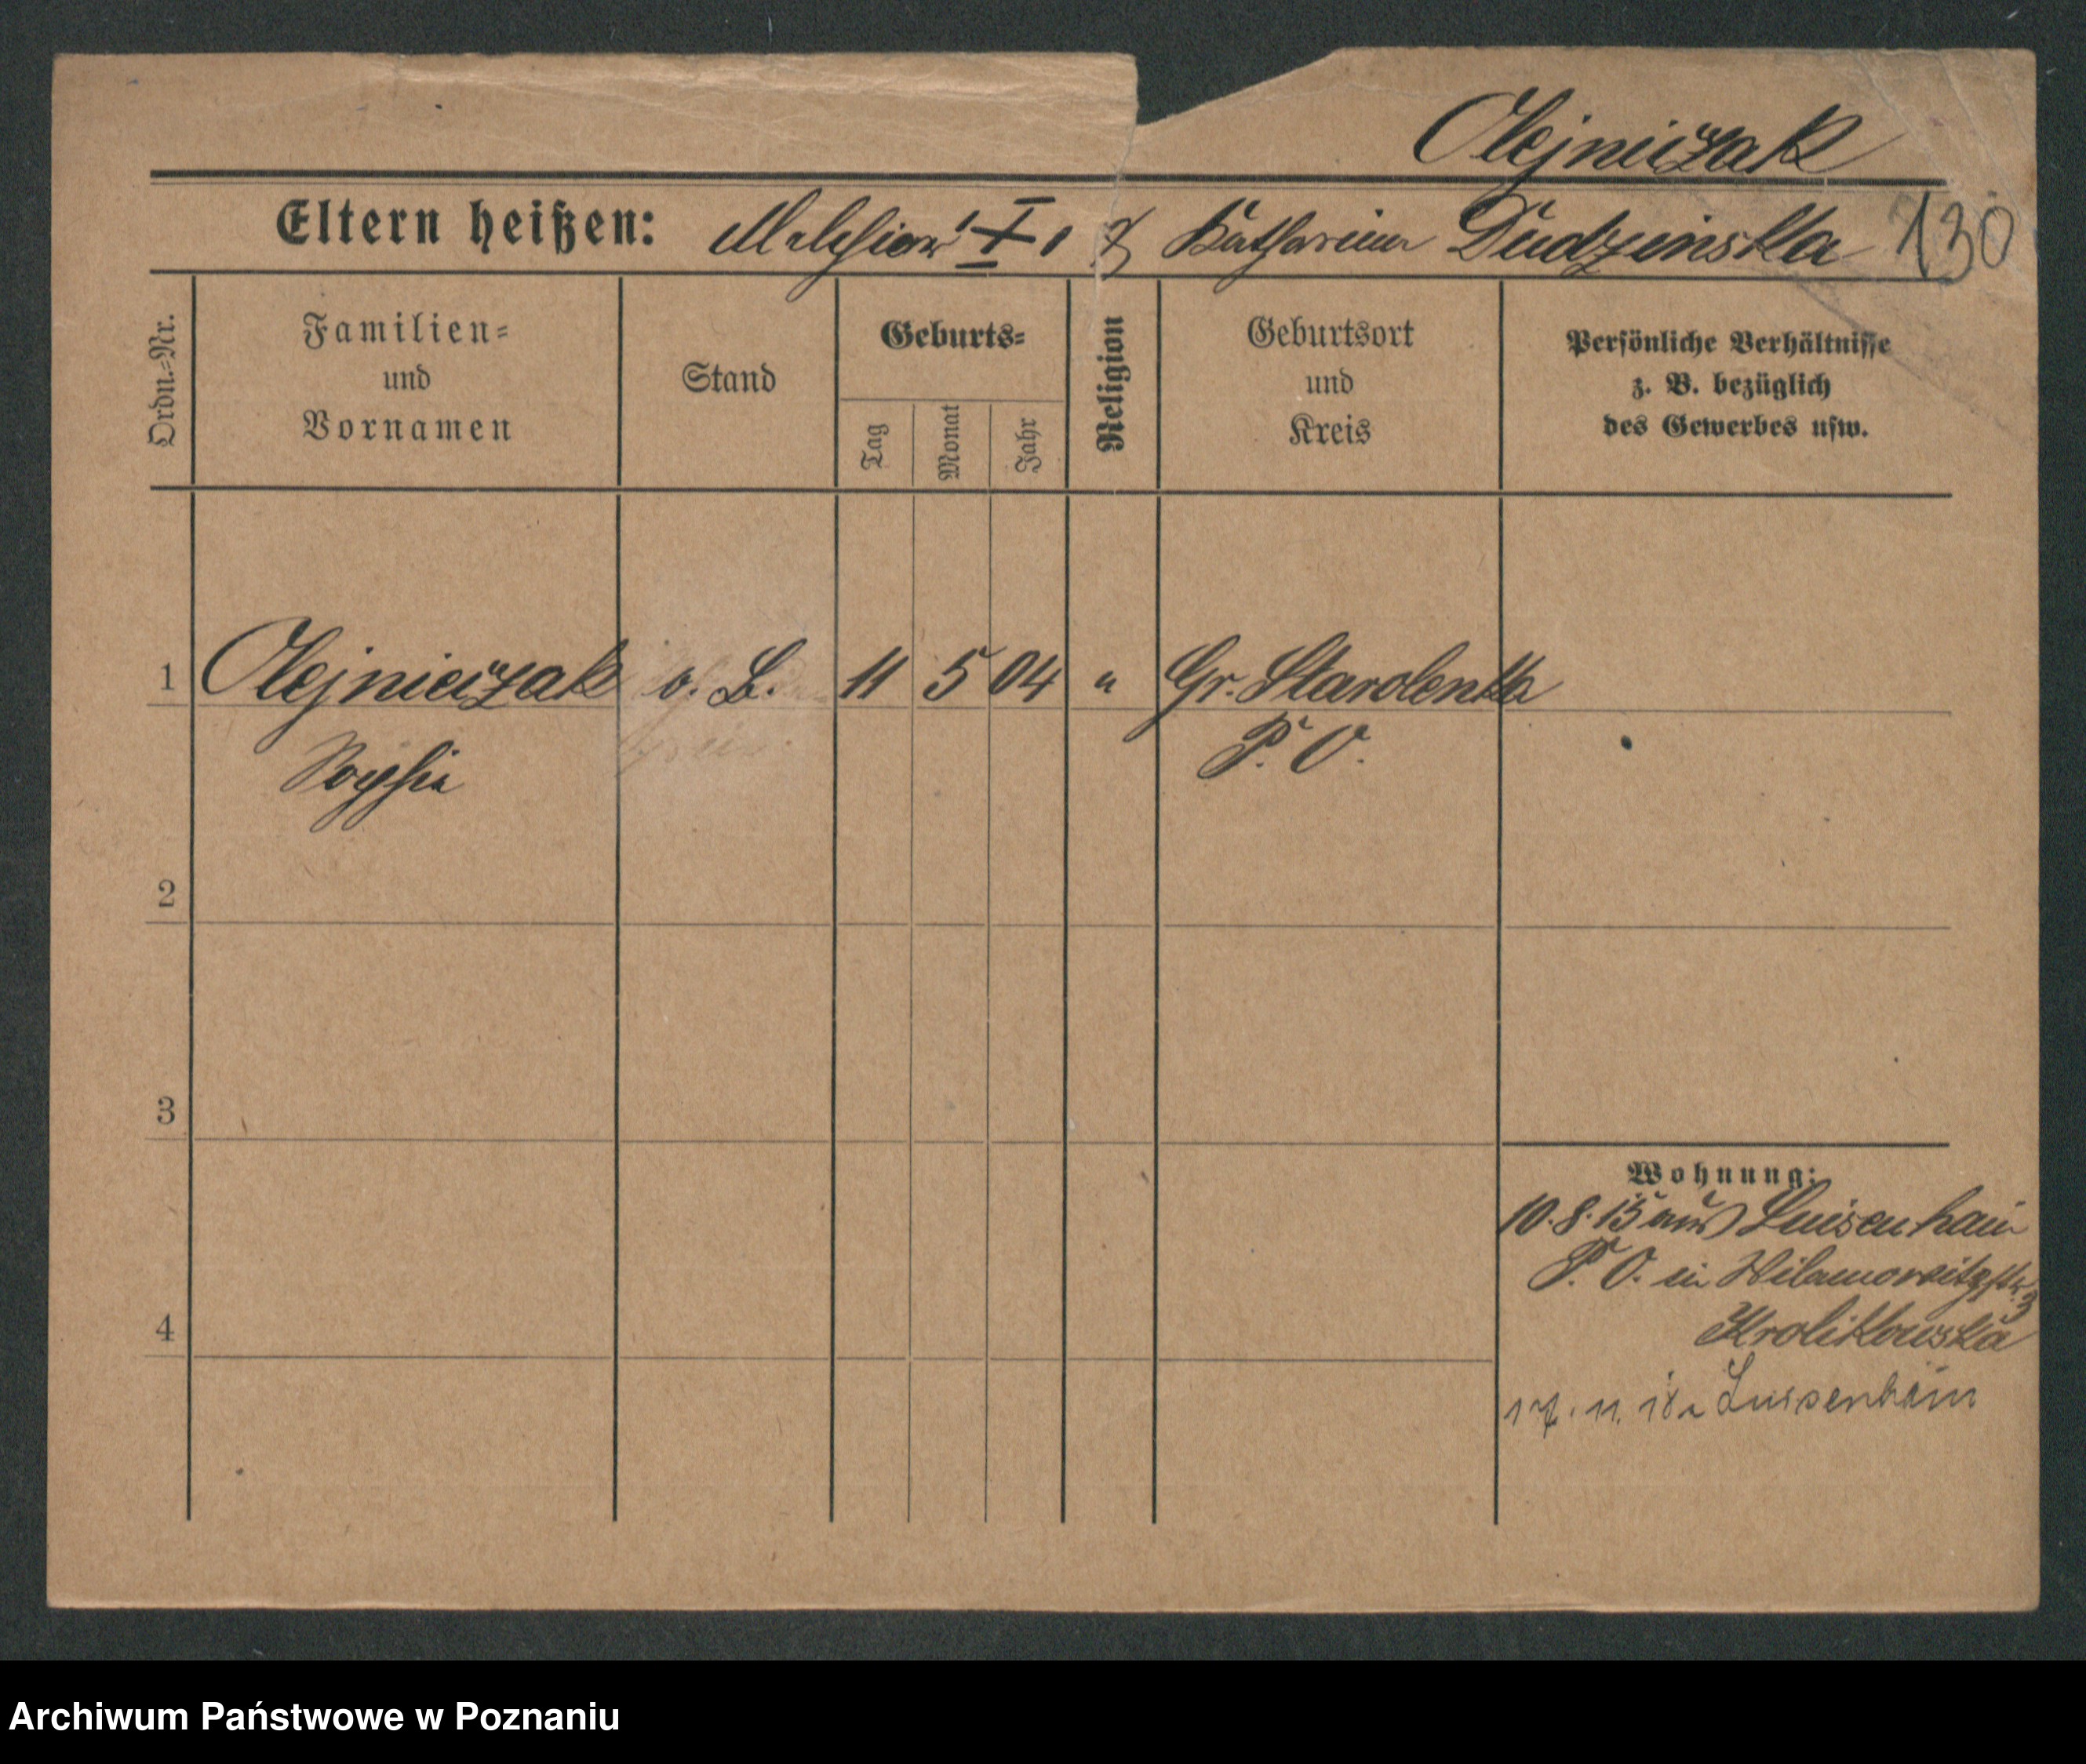 Olejniczak
Eltern heißen: Melchior I. & Katharina Dudzinska 130
Ordn.-Nr.
Familien-
und
Vornamen
Stand
Geburts-
Tag
Monat
Jahr
Religion
Geburtsort
und
Kreis
Persönliche Verhältnisse
z. B. bezüglich
des Gewerbes usw.
1 Olejniczak o. B. 11 5 04 " Gr. Starolenka
Sophie P. O.
2
3
4
Wohnung:
10.8.15 aus Luisenhain
P. O. in Wilamowitzstr. 3
Krolikowska
17. 11. 18 Luisenhain
Archiwum Państwowe w Poznaniu